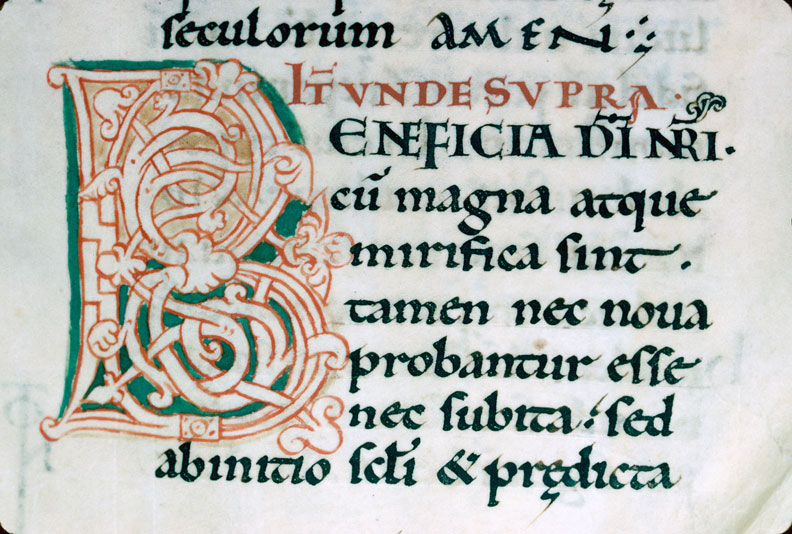 seculorum AMEN
IT̄ VNDE SVPRA.
BENEFICIA DN̄I NR̄I.
cū magna atque
mirifica sint.
tamen nec noua
probantur esse
nec subita: sed
abinitio scl̄i & prędicta